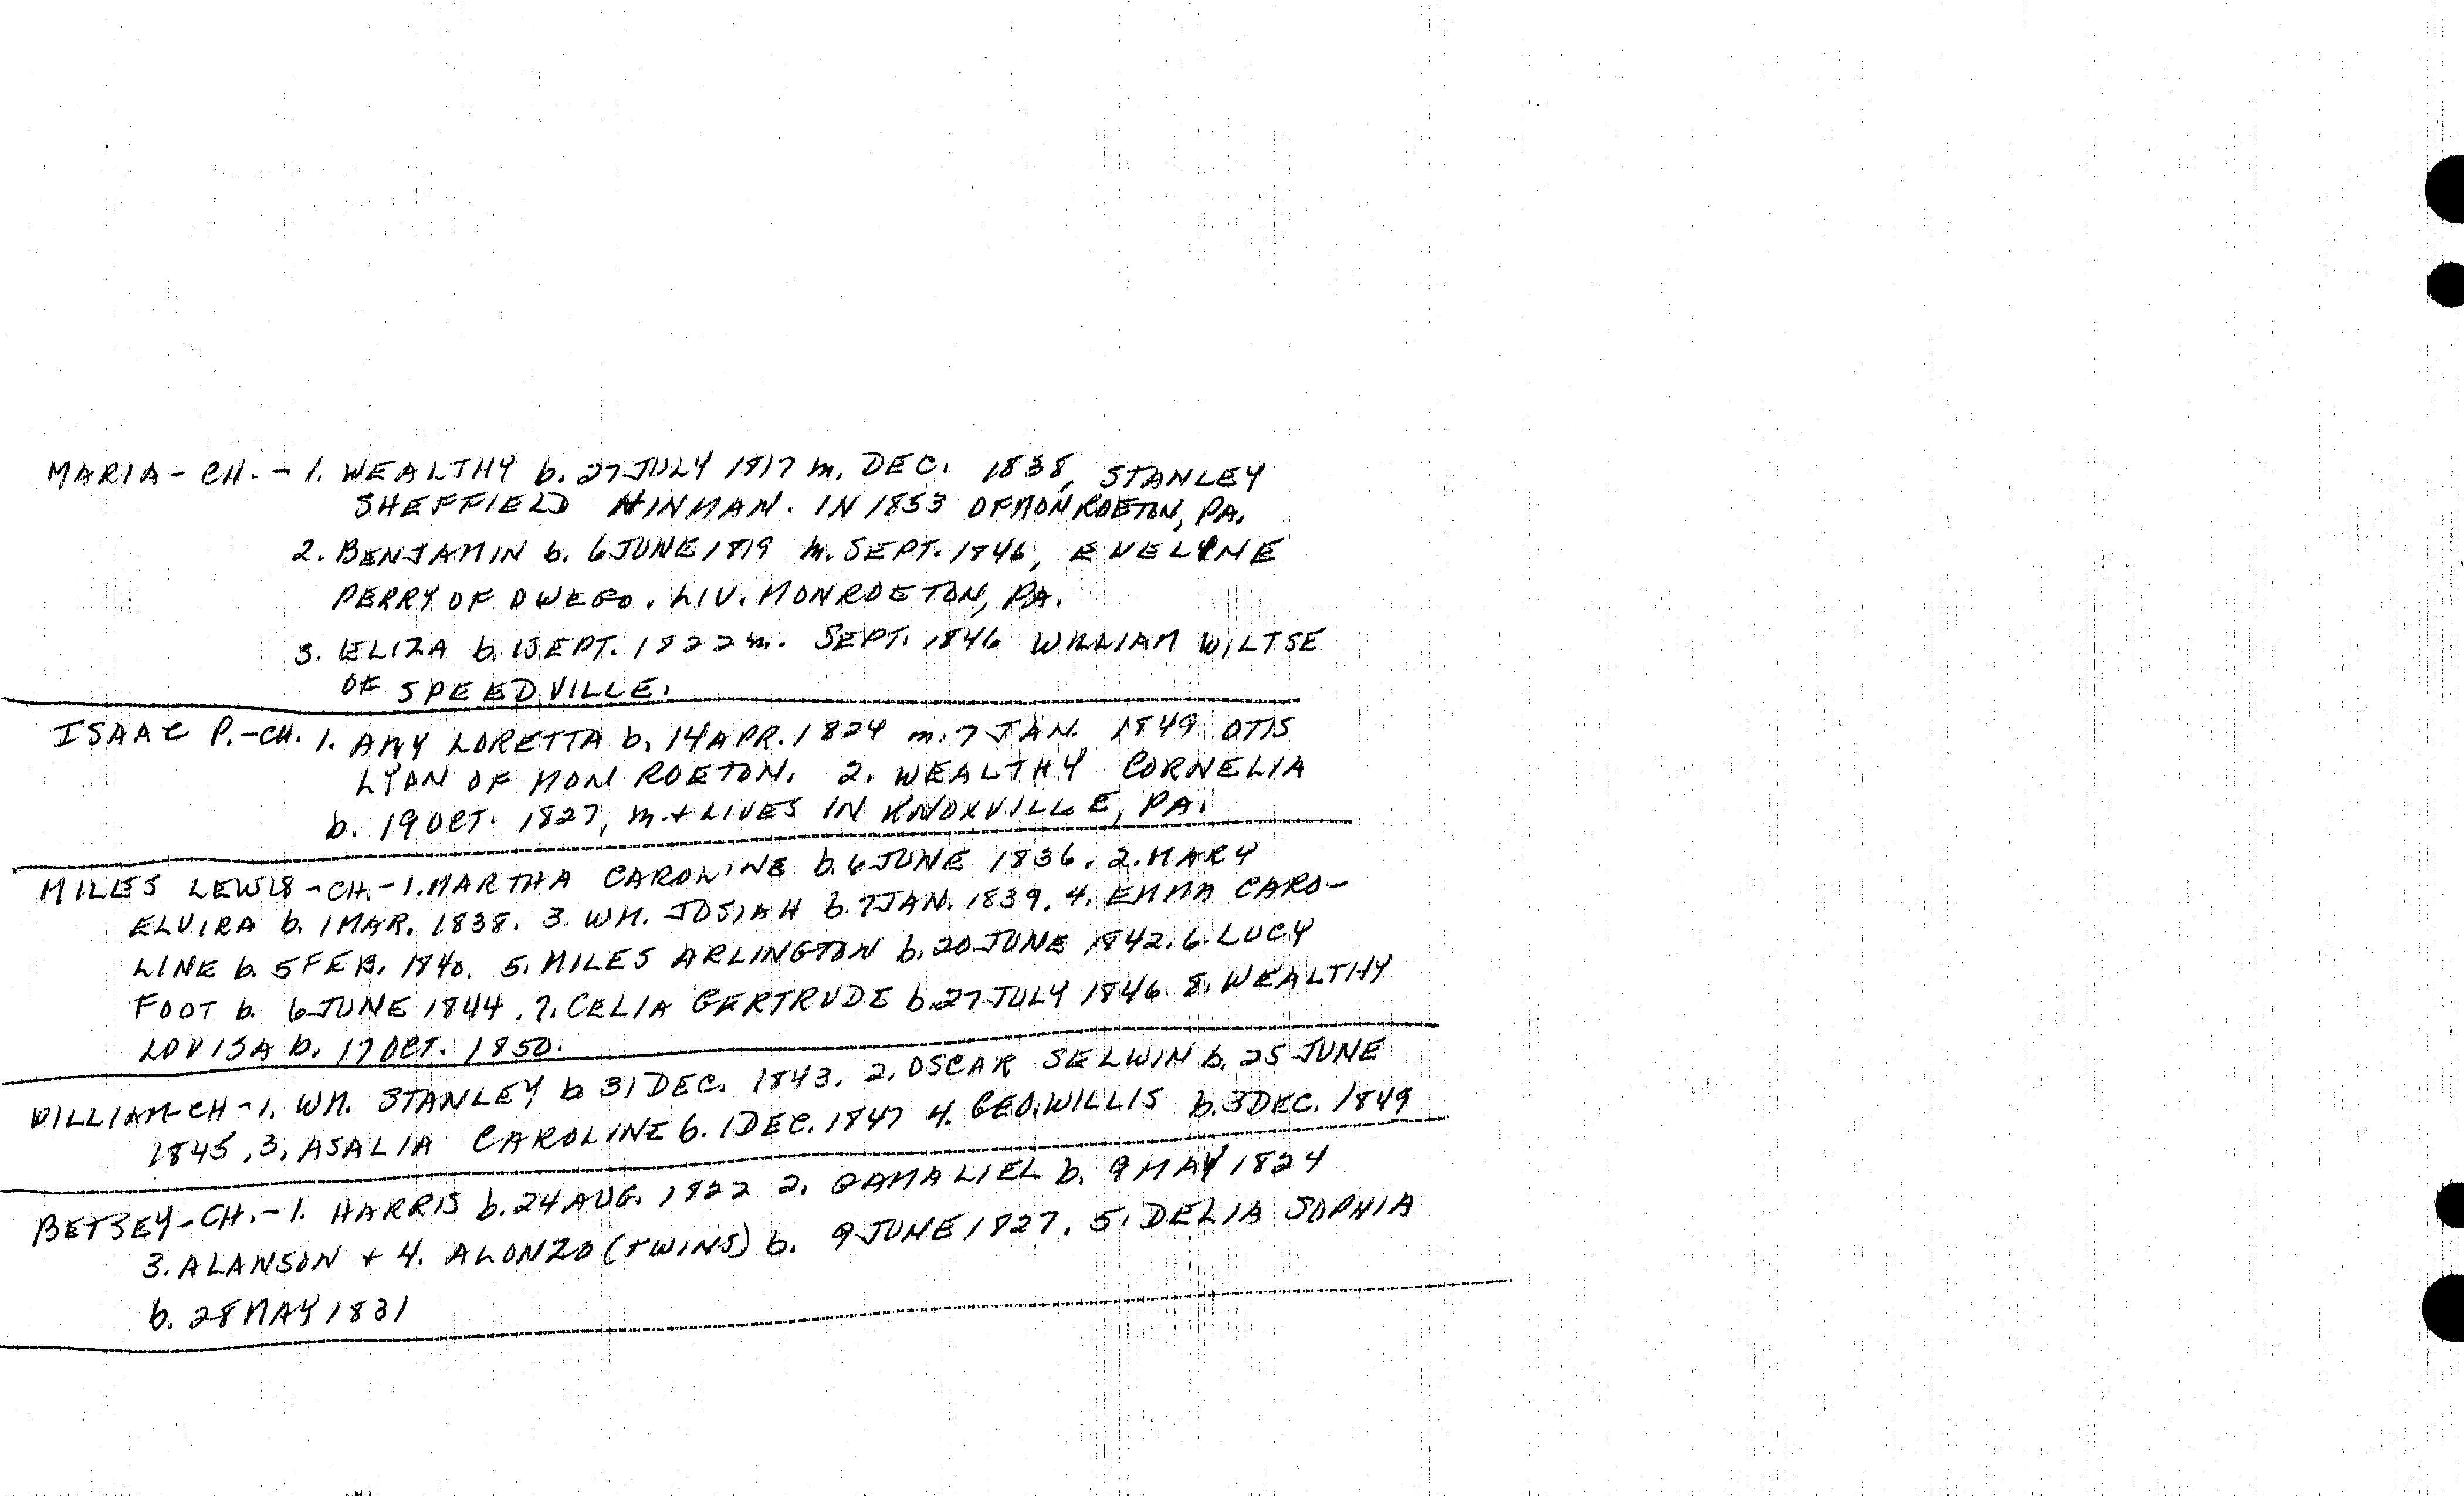 MARIA - CH. - 1. WEALTHY b. 27 JULY 1817 m. DEC. 1838, STANLEY
SHEFFIELD HINMAN. IN 1853 OF MONROETON, PA.
2. BENJAMIN b. 6 JUNE 1819 m. SEPT. 1846, EVELYNE
PERRY OF OWEGO. LIV. MONROETON, PA.
3. ELIZA b. SEPT. 1822 m. SEPT. 1846 WILLIAM WILTSE
OF SPEEDVILLE.
ISAAC P. - CH. 1. AMY LORETTA b. 14 APR. 1824 m. 7 JAN. 1849 OTIS
LYON OF MONROETON. 2. WEALTHY CORNELIA
b. 19 OCT. 1827, m. + LIVES IN KNOXVILLE, PA.
MILES LEWIS - CH. - 1. MARTHA CAROLINE b. 6 JUNE 1836. 2. MARY
ELVIRA b. 1 MAR. 1838. 3. WM. JOSIAH b. 7 JAN. 1839. 4. EMMA CARO-
LINE b. 5 FEB. 1840. 5. MILES ARLINGTON b. 20 JUNE 1842. 6. LUCY
FOOT b. 6 JUNE 1844. 7. CELIA GERTRUDE b. 27 JULY 1846 8. WEALTHY
LOUISA b. 17 OCT. 1850.
WILLIAM - CH - 1. WM. STANLEY b 31 DEC. 1843. 2. OSCAR SELWIN b. 25 JUNE
1845. 3. ASALIA CAROLINE b. 1 DEC. 1847 4. GEO. WILLIS b. 3 DEC. 1849
BETSEY - CH. - 1. HARRIS b. 24 AUG. 1822 2. GAMALIEL b. 9 MAY 1824
3. ALANSON + 4. ALONZO (TWINS) b. 9 JUNE 1827. 5. DELIA SOPHIA
b. 28 MAY 1831